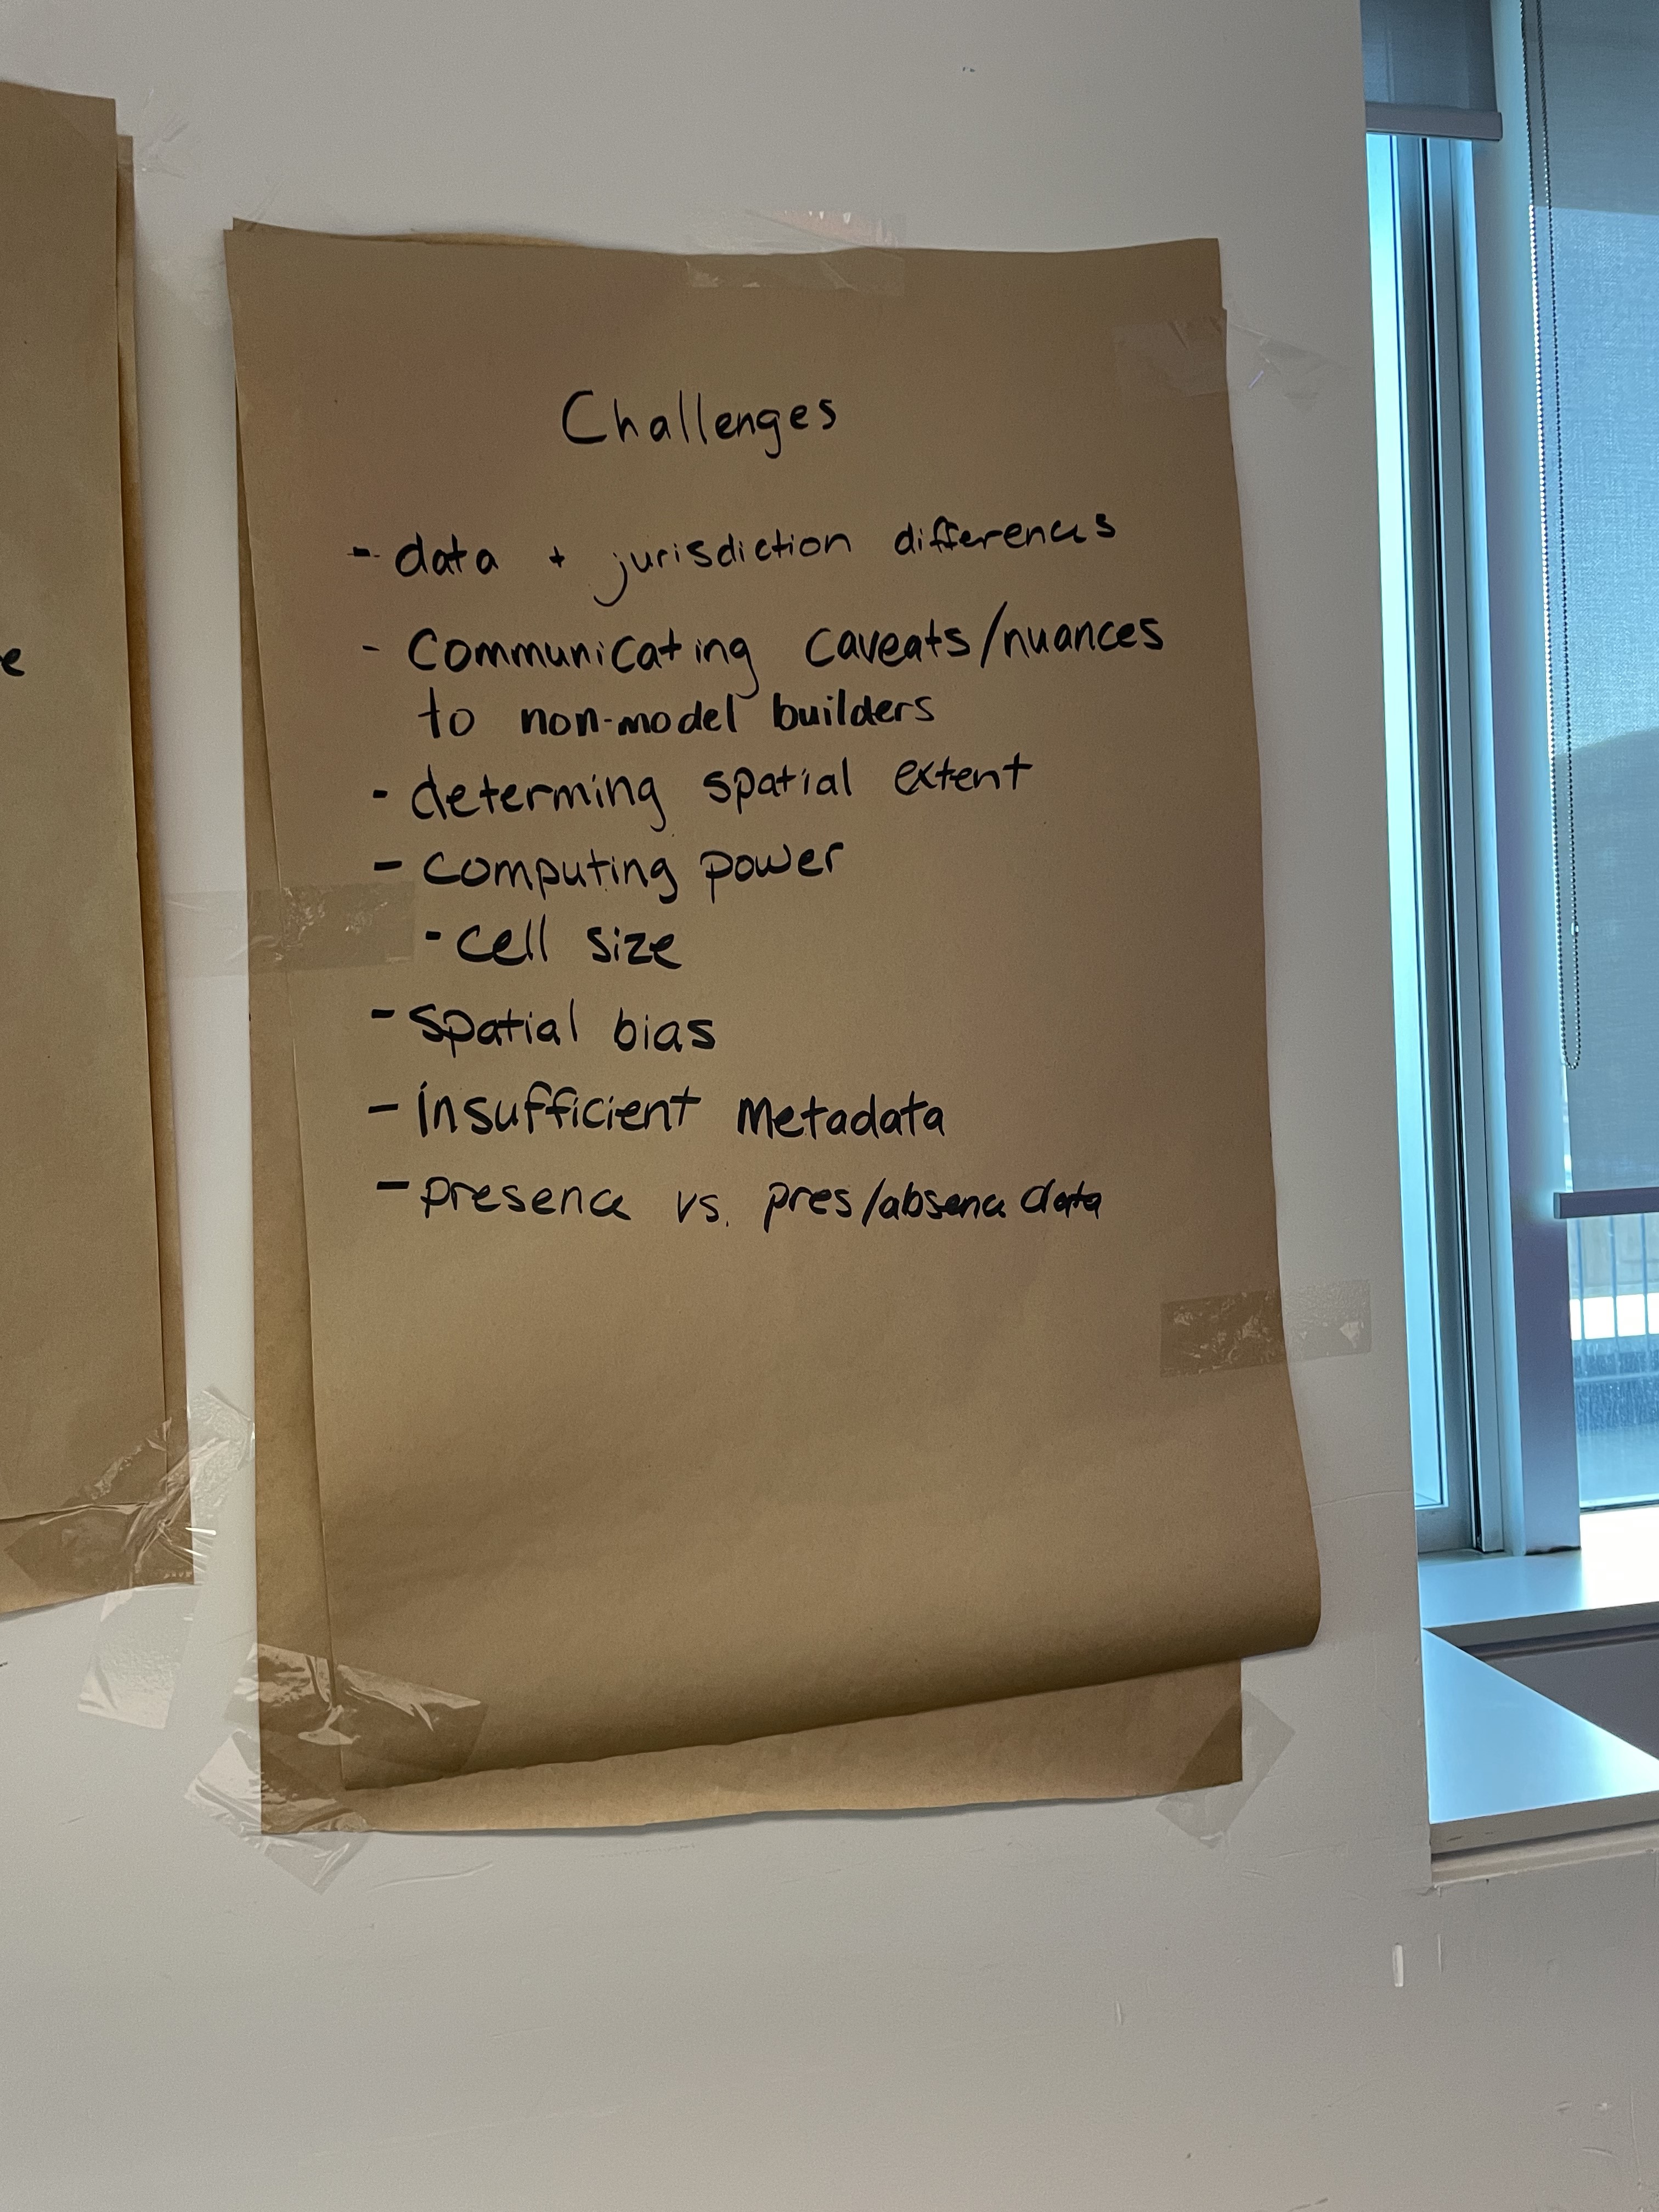 e
Challenges
- data + jurisdiction differences
- Communicating caveats/nuances
to non-model builders
- determing spatial extent
- Computing power
- cell size
- Spatial bias
- insufficient Metadata
- presence vs. pres/absence data